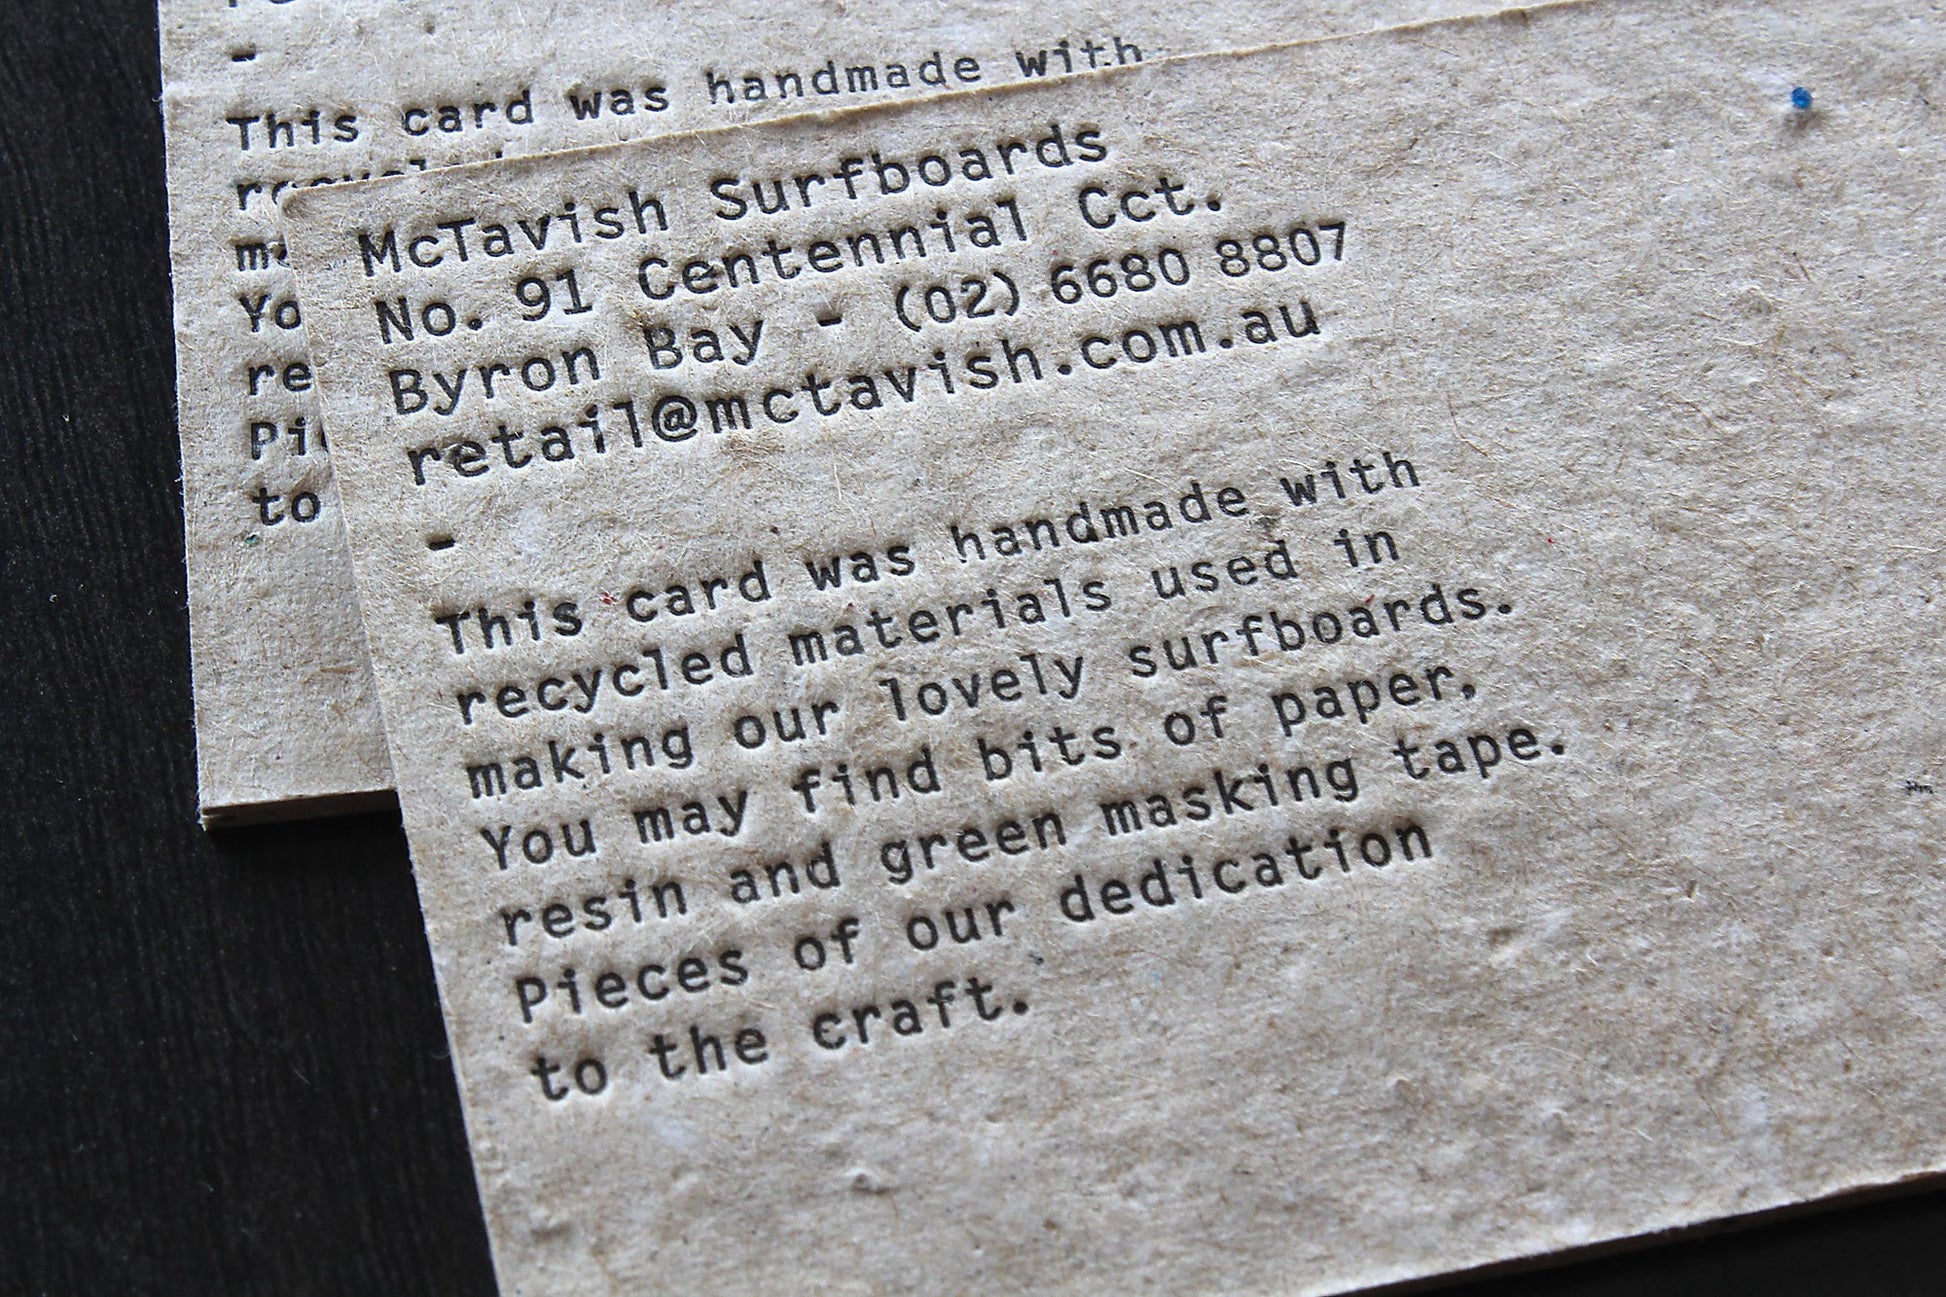 -
This card was handmade with
to
McTavish Surfboards
No. 91 Centennial Cct.
Byron Bay - (02) 6680 8807
retail@mctavish.com.au
-
This card was handmade with
recycled materials used in
making our lovely surfboards.
You may find bits of paper,
resin and green masking tape.
Pieces of our dedication
to the craft.